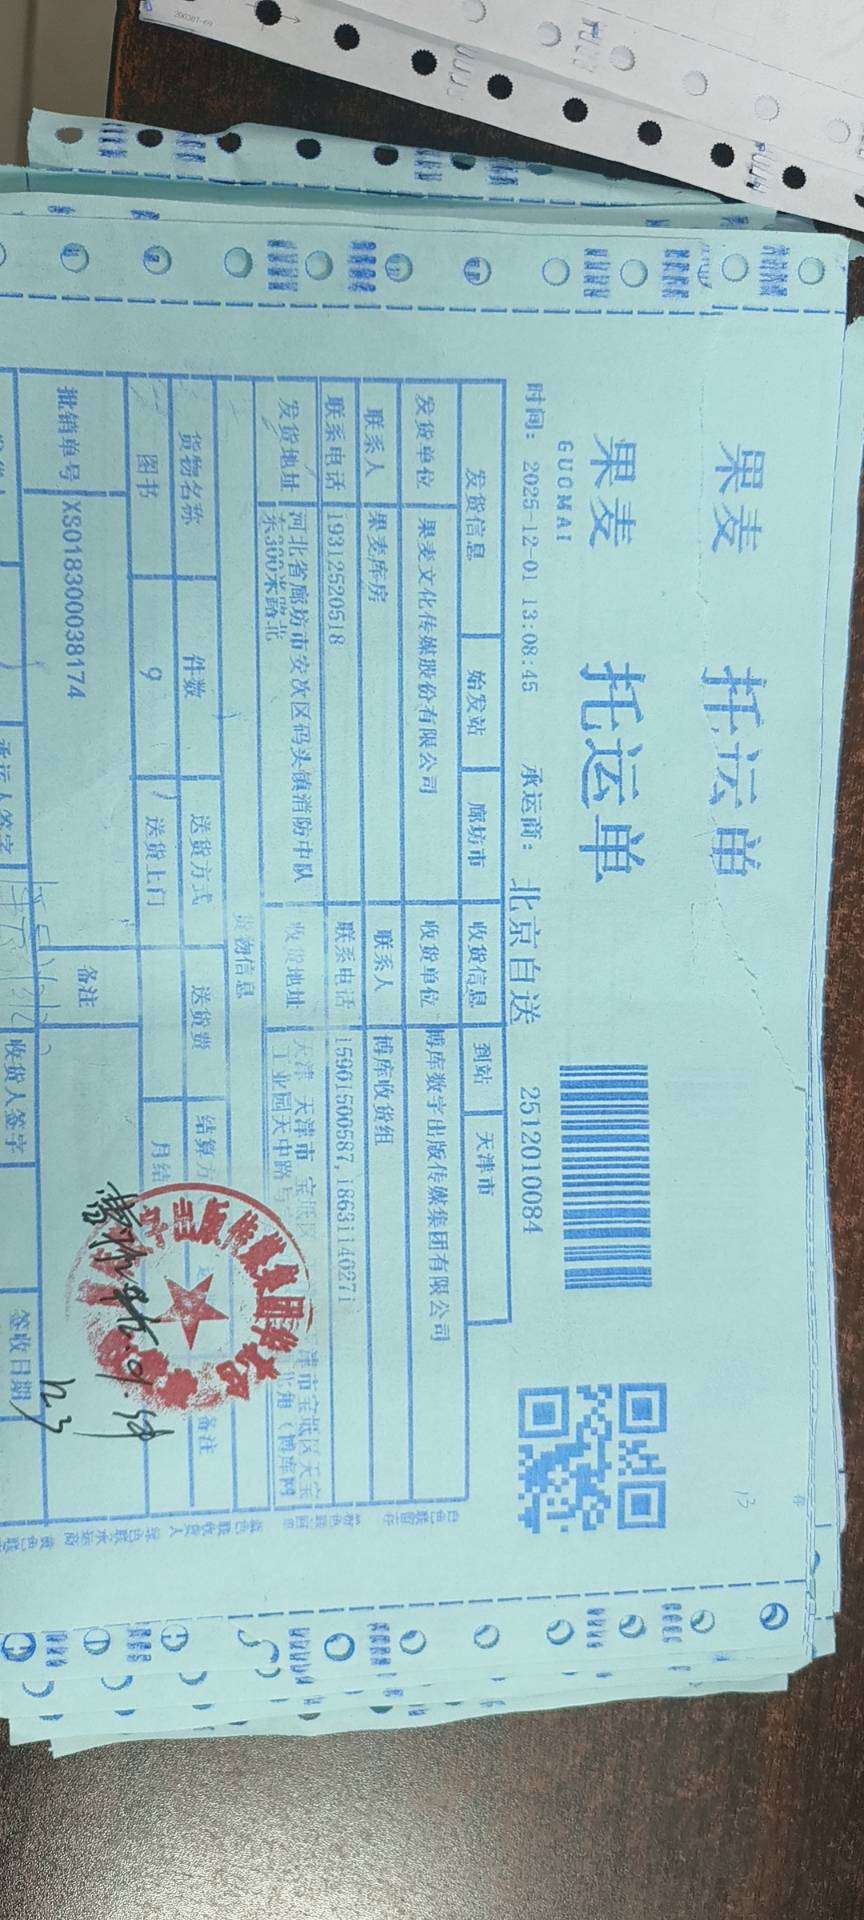 果麦 托运单
果麦 托运单
GUOMAI
时间: 2025-12-01 13:08:45 承运商: 北京自送 2512010084
发货信息 始发站 廊坊市 收货信息 到站 天津市
发货单位 果麦文化传媒股份有限公司 收货单位 博库数字出版传媒集团有限公司
联系人 果麦库房 联系人 博库收货组
联系电话 19312520518 联系电话 15901500587,18631140271
发货地址 河北省廊坊市安次区码头镇消防中队
东300米路北
收货地址 天津 天津市 宝坻区 津市宝坻区天宝
工业园天中路与 角(博库网
货物信息
货物名称 件数 送货方式 送货费 结算方 备注
图书 9 送货上门 月结
批销单号 XS018300038174 备注
承运人签字 收货人签字 签收日期
12.3